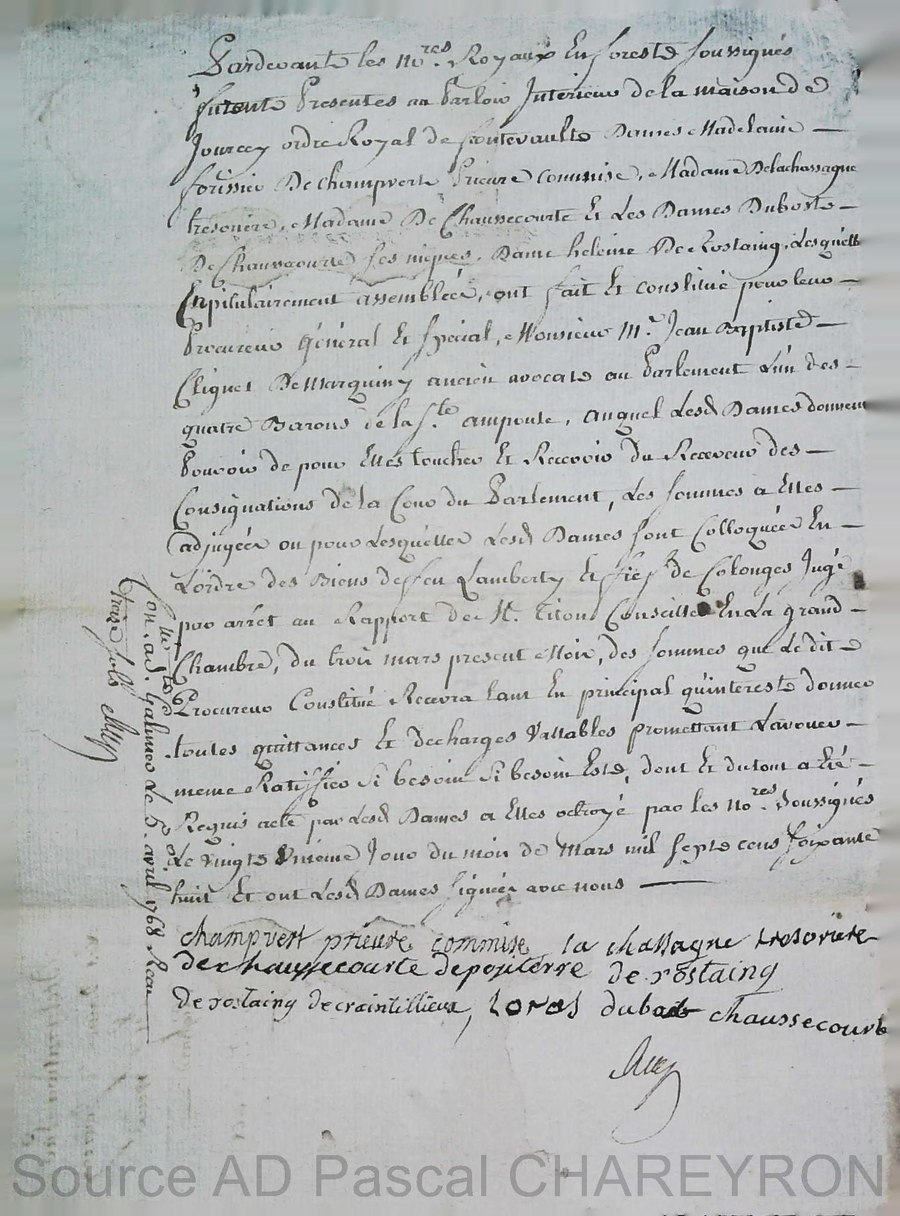 Pardevante les No.res Royaux En foreste soussignés
furente Presentes au Parloir Interieur de la maison de
Jourcey ordre Royal de fontevaulte Dames Madelaine
forissier De champverte Prieure Commise, Madame Delachassagne
tresoriere, Madame De Chaussecourte Et Les Dames Duboste
De Chaussecourte ses nieces, Dame heleine De Rostaing, Lesquelle
Capitulairement assemblées, ont fait Et constitué pour leur
Procureur général Et spécial, Monsieur M.e Jean Baptiste
Cliquet De Marquiny ancien avocate au Parlement L'un des
quatre Barons de la Ste. ampoule, auquel Lesd Dames donnent
Pouvoir de pour Elles toucher Et Recevoir du Receveur des
Consignations de la Cour du Parlement, Les sommes a Elles
adjugées ou pour Lesquelles Lesd Dames sont Colloquées En
L'ordre des Biens de feu Lamberty Et de Colonges Jugé
par arrêt au Rapport de M. titon Conseiller En La grand
Chambre, du trois mars present Mois, des sommes que Le dit
Procureur Constitué Recevra tant En principal qu'intereste donner
toutes quittances Et decharges Vallables promettant L'avouer
meme Ratiffier Si besoin Si besoin Este, dont Et dutout a Eté
Requis acte par Lesd Dames a Elles octroyé par les No.res Soussignés
Le Vingte Unième Jour du mois de Mars mil septe cens soixante
huit Et ont Lesd Dames signées avec nous
champvert prieure commise la chassagne tresoriere
de chaussecourte depouterre de rostaing
de rostaing decraintillieux, loras dubost chaussecourt
a St. Galmier Le 6. avril 1768 Reçu
treize sols
Source AD Pascal CHAREYRON